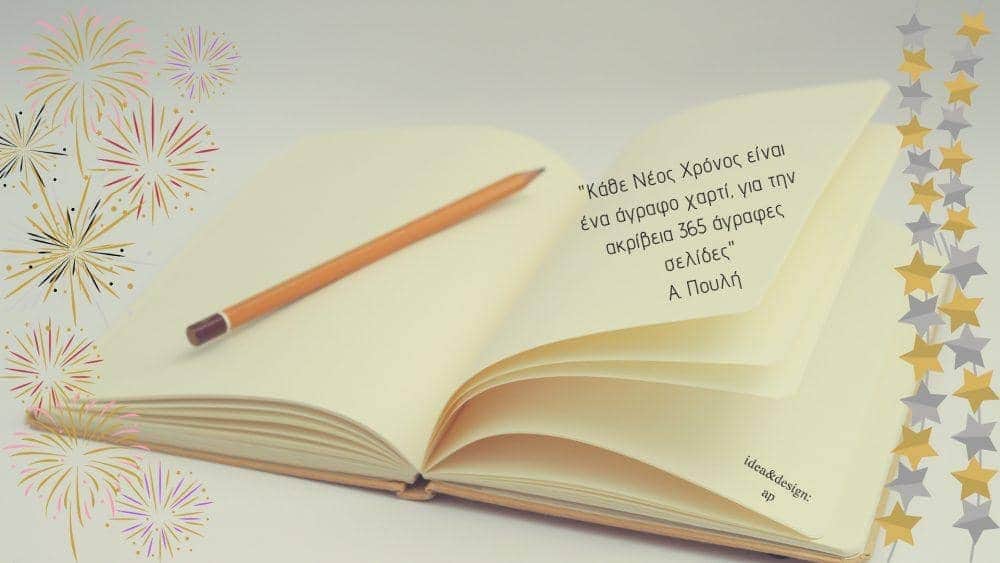 "Κάθε Νέος Χρόνος είναι
ένα άγραφο χαρτί, για την
ακρίβεια 365 άγραφες
σελίδες"
Α. Πουλή
idea&design:
ap